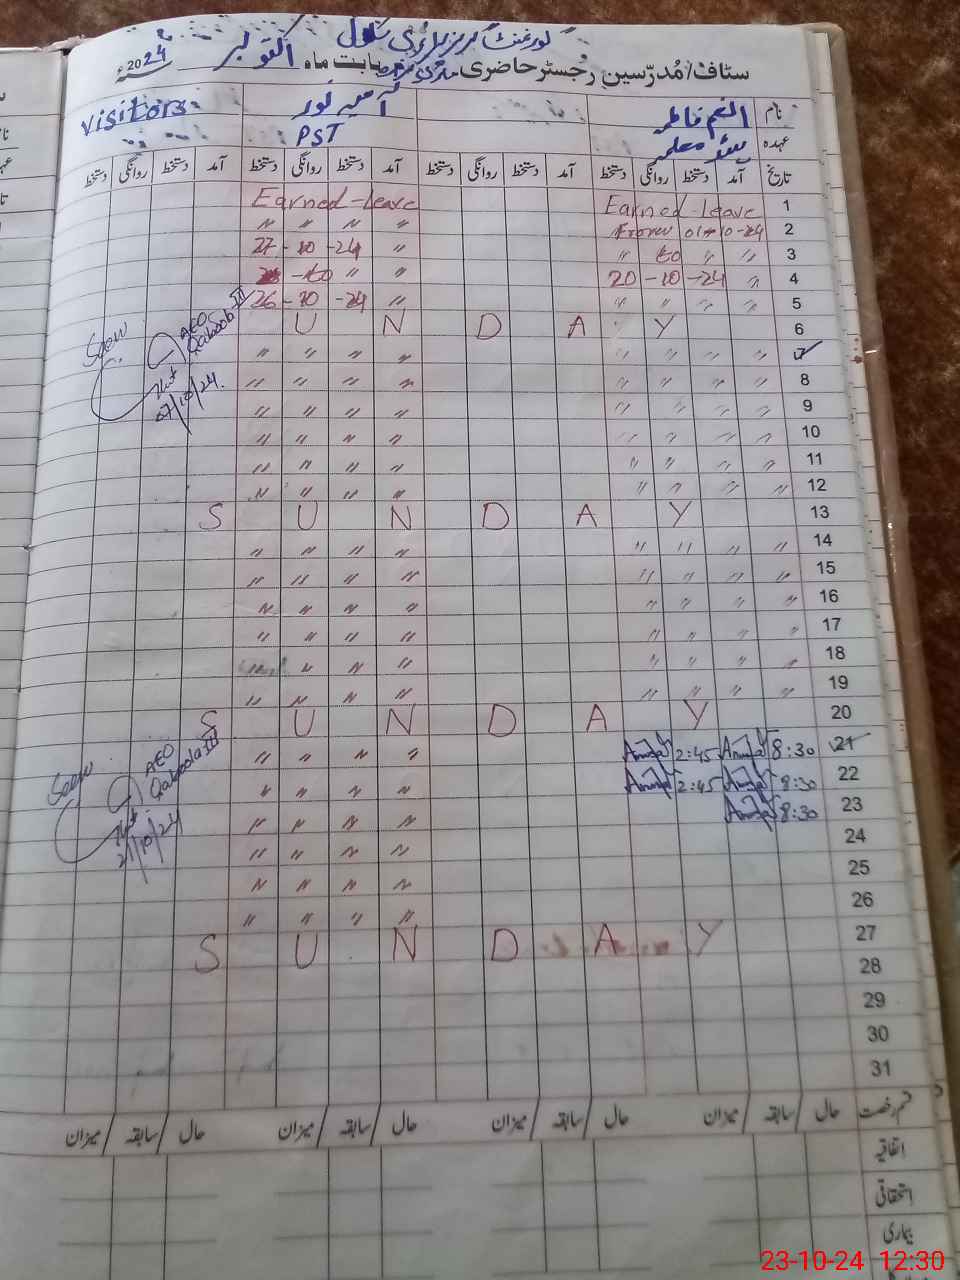 گورنمنٹ گرلز پرائمری سکول
سٹاف/مُدرّسین رجسٹر حاضری بابت ماہ اکتوبر 2024ء
نام انعم فاطمہ آمنہ نور visitors
عہدہ ہیڈ معلمہ PST
تاریخ آمد دستخط روانگی دستخط آمد دستخط روانگی دستخط آمد دستخط روانگی دستخط آمد دستخط روانگی دستخط
Earned-Leave Earned Leave 1
" " " " From 01-10-24 2
27-10-24 " " to " " 3
-to " " 20-10-24 " 4
26-10-24 " " " " " 5
S U N D A Y 6
" " " " " " " " 7
" " " " " " " " 8
" " " " " " " " 9
" " " " " " " " 10
" " " " " " " " 11
" " " " " " " " 12
S U N D A Y 13
" " " " " " " " 14
" " " " " " " " 15
" " " " " " " " 16
" " " " " " " " 17
" " " " " " " " 18
" " " " " " " " 19
S U N D A Y 20
" " " " 2:45 8:30 21
" " " " 2:45 8:30 22
" " " " 8:30 23
" " " " 24
" " " " 25
" " " " 26
S U N D A Y 27
28
29
30
31
Seen
AEO
Qaboola III
07/10/24.
Seen
AEO
Qaboola III
21/10/24
قسم رخصت حال / سابقہ / میزان حال / سابقہ / میزان حال / سابقہ / میزان حال / سابقہ / میزان
اتفاقیہ
استحقاقی
بیماری
23-10-24 12:30